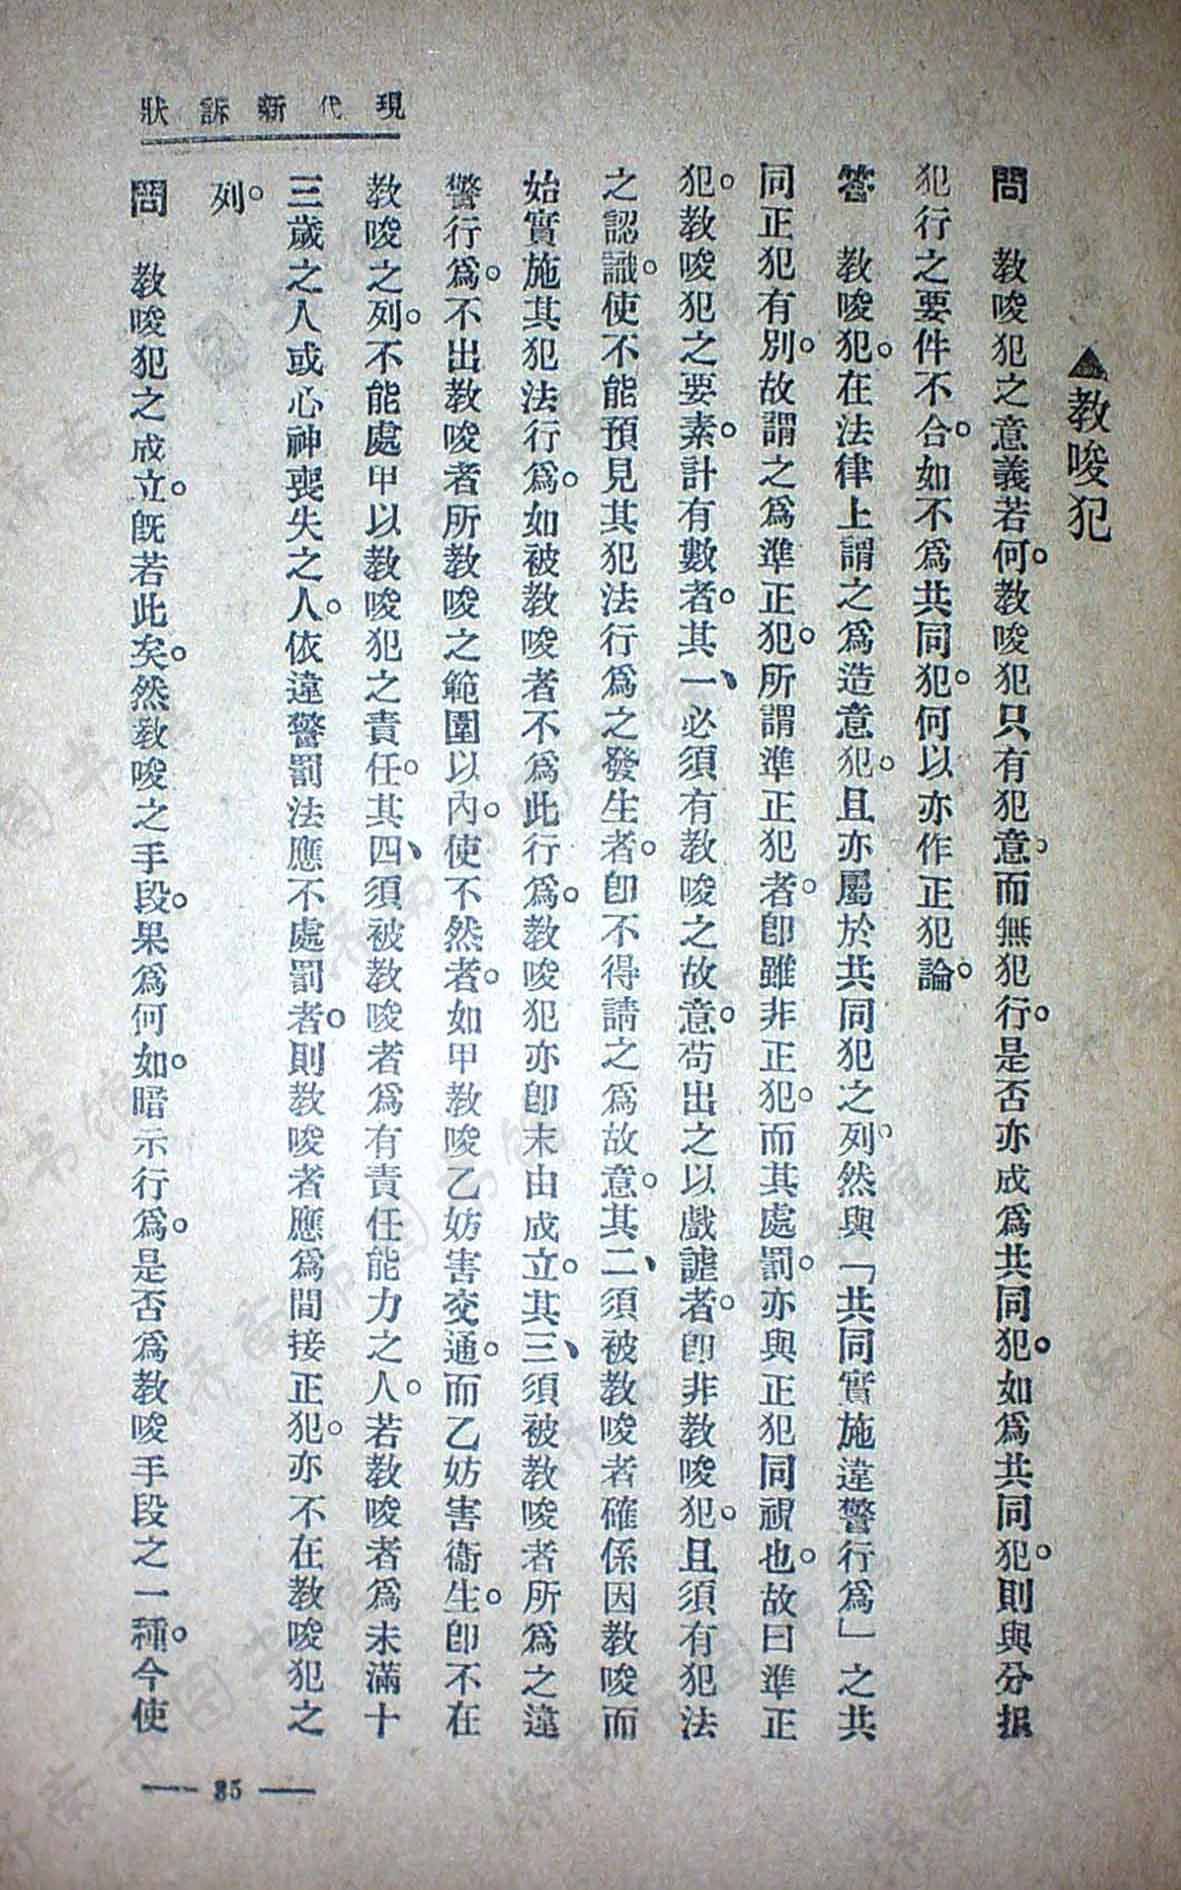 現代新訴狀
▲教唆犯
問　教唆犯之意義若何。教唆犯只有犯意。而無犯行。是否亦成爲共同犯。如爲共同犯。則與分担
犯行之要件不合。如不爲共同犯。何以亦作正犯論。
答　教唆犯。在法律上謂之爲造意犯。且亦屬於共同犯之列。然與「共同實施違警行爲」之共
同正犯有別。故謂之爲準正犯。所謂準正犯者。卽雖非正犯。而其處罰。亦與正犯同視也。故曰準正
犯。教唆犯之要素。計有數者。其一、必須有教唆之故意。苟出之以戲謔者。卽非教唆犯。且須有犯法
之認識。使不能預見其犯法行爲之發生者。卽不得謂之爲故意。其二、須被教唆者確係因教唆而
始實施其犯法行爲。如被教唆者不爲此行爲。教唆犯亦卽末由成立。其三、須被教唆者所爲之違
警行爲。不出教唆者所教唆之範圍以內。使不然者。如甲教唆乙妨害交通。而乙妨害衞生。卽不在
教唆之列。不能處甲以教唆犯之責任。其四、須被教唆者爲有責任能力之人。若教唆者爲未滿十
三歲之人或心神喪失之人。依違警罰法應不處罰者。則教唆者應爲間接正犯。亦不在教唆犯之
列。
問　教唆犯之成立。旣若此矣。然教唆之手段。果爲何如。暗示行爲。是否爲教唆手段之一種。今使
— 35 —